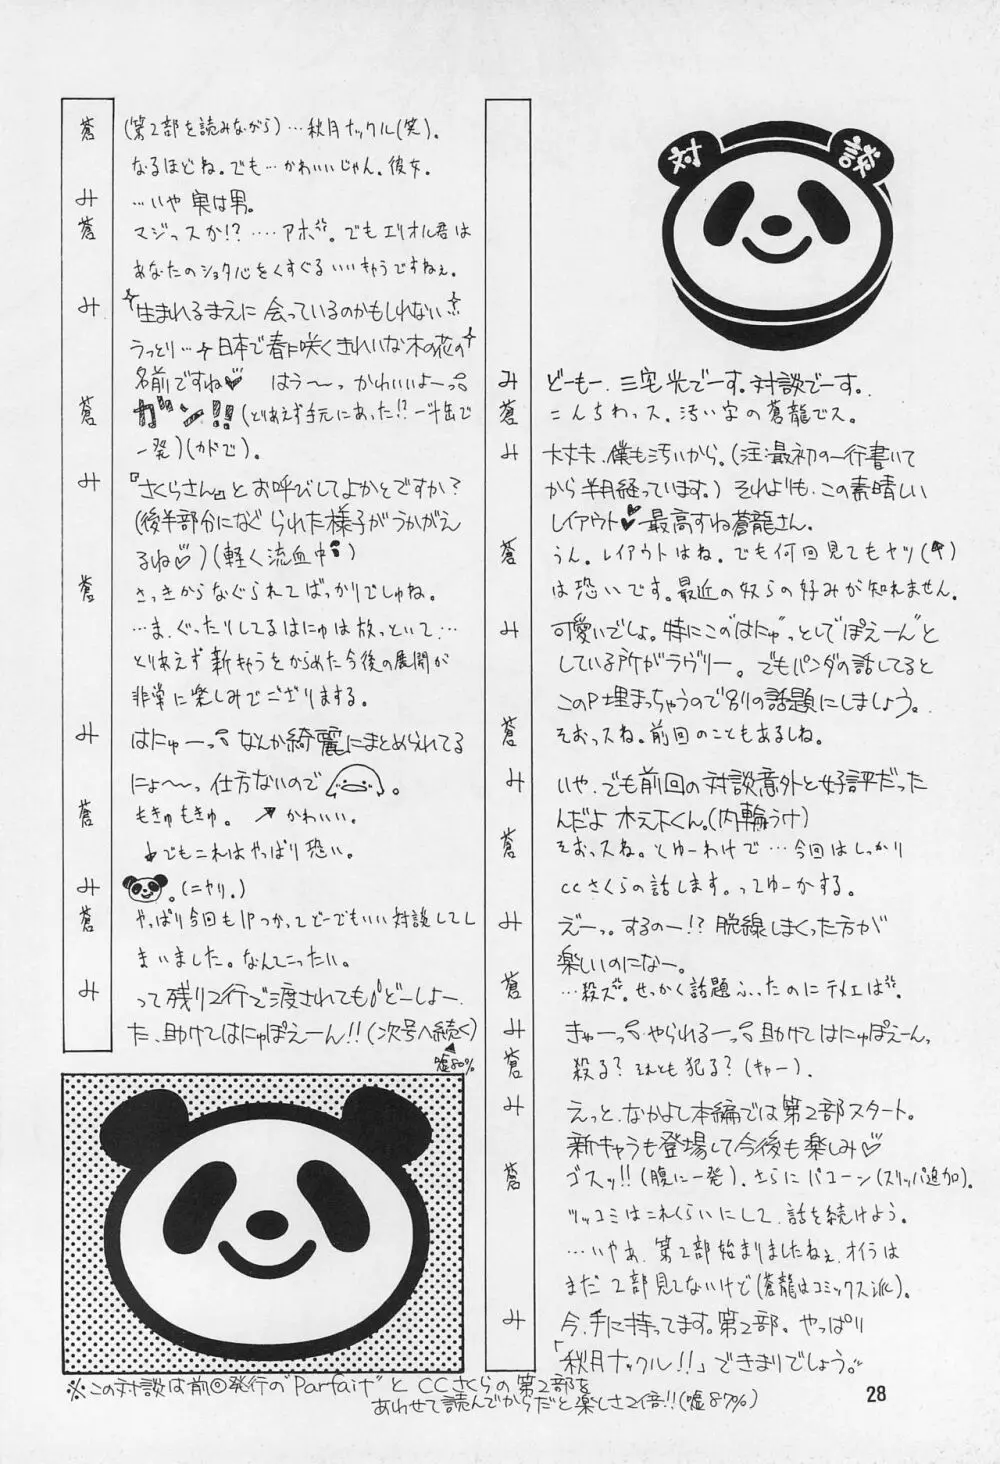 対談
み どーもー、三宅光でーす。対談でーす。
蒼 こんちわッス、汚い字の蒼龍でス。
み 大丈夫、僕も汚いから。(注:最初の一行書いて
から半月経っています。)それよりも、この素晴しい
レイアウト♥最高すね蒼龍さん。
蒼 うん。レイアウトはね。でも何回見てもヤツ(
は恐いです。最近の奴らの好みが知れません。
み 可愛いでしょ。特にこの"はにゅ"っとして"ぽえーん"と
している所がラヴリー。でもパンダの話してると
このP埋まっちゃうので別の話題にしましょう。
蒼 そおっスね。前回のこともあるしね。
み いや、でも前回の対談意外と好評だった
んだよ木之下くん。(内輪うけ)
蒼 そおっスね。とゆーわけで…今回はしっかり
CCさくらの話します。ってゆーかする。
み えーっ。するのー!?脱線しまくった方が
楽しいのになー。
蒼 …殺ズ。せっかく話題ふったのにテメエは"。
み きゃーっ やられるーっ 助けてはにゅぽえーん。
蒼 殺る?それとも犯る?(キャー)。
み えっと、なかよし本編では第2部スタート。
新キャラも登場して今後も楽しみ♡
蒼 ゴスッ!!(腹に一発)、さらにパコーン(スリッパ追加)。
ツッコミはこれくらいにして、話を続けよう。
…いやあ、第2部始まりましたねぇ、オイラは
まだ2部見てないけど(蒼龍はコミックス派)。
み 今、手に持ってます。第2部。やっぱり
「秋月ナックル!!」できまりでしょう。
蒼 (第2部を読みながら)…秋月ナックル(笑)。
なるほどね。でも…かわいいじゃん。彼女。
み …いや 実は男。
蒼 マジっスか!?….アホ"。でもエリオル君は
あなたのショタ心をくすぐるいいキャラですねぇ。
み "生まれるまえに 会っているのかもしれない"
うっとり… 日本で春に咲くきれいな木の花の
名前ですね♡ はう〜っ かわいいよーっ
蒼 ガン!!(とりあえず手元にあった!?一斗缶で
一発)(カドで)。
み 『さくらさん』とお呼びしてよかとですか?
(後半部分になぐられた様子がうかがえ
るね♡)(軽く流血中)
蒼 さっきからなぐられてばっかりでしゅね。
…ま、ぐったりしてるはにゅは放っといて…
とりあえず新キャラをからめた今後の展開が
非常に楽しみでござりまする。
み はにゅーっ なんか綺麗にまとめられてる
にょ〜っ 仕方ないので 。
蒼 もきゅもきゅ。 かわいい。
でもこれはやっぱり恐い。
み 。(ニヤリ。)
蒼 やっぱり今回も1Pつかってどーでもいい対談してし
まいました。なんてこったい。
み って残り2行で渡されても どーしよー、
た、助けてはにゅぽえーん!!(次号へ続く)
嘘80%
※この対談は前回発行の"Parfait"とCCさくらの第2部を
あわせて読んでからだと楽しさ2倍!!(嘘87%)
28